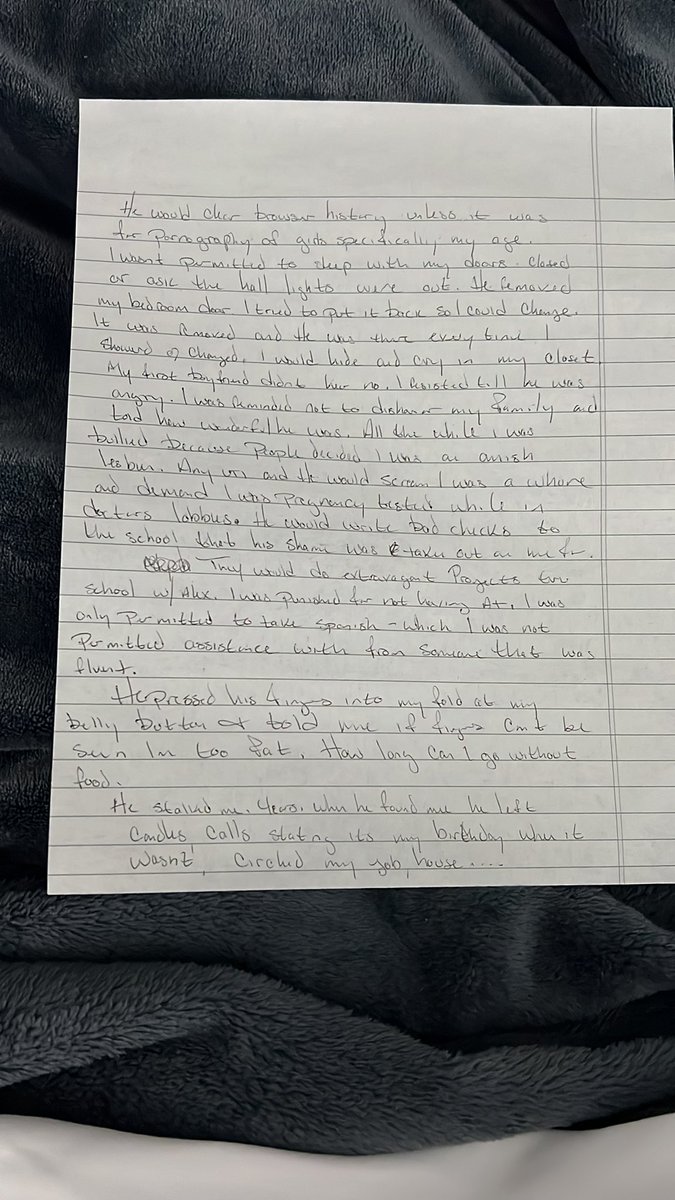 He would clear browser history unless it was
for pornography of girls specifically my age.
I wasn't permitted to sleep with my doors closed
or ask the hall lights were out. He removed
my bedroom door I tried to put it back so I could change.
It was removed and He was there every time I
showered or changed. I would hide and cry in my closet
My first boyfriend didnt hear no. I resisted till he was
angry. I was reminded not to dishonor my family and
told how wonderful he was. All the while I was
bullied because People decided I was an amish
lesbian. Any and He would scream I was a whore
and demand I was Pregnancy tested while in
doctors lobbys. He would write bad checks to
the school that his shame was taken out on me for.
They would do extravagent Projects for
school w/ Alex. I was punished for not having A+. I was
only Permitted to take spanish - which I was not
Permitted assistance with from someone that was
fluent.
He pressed his fingers into my fold at my
belly button & told me if fingers Cant be
seen Im too fat. How long can I go without
food.
He stalked me. Years. when he found me he left
Candles, Calls stating its my birthday when it
wasnt, Circled my job, house....